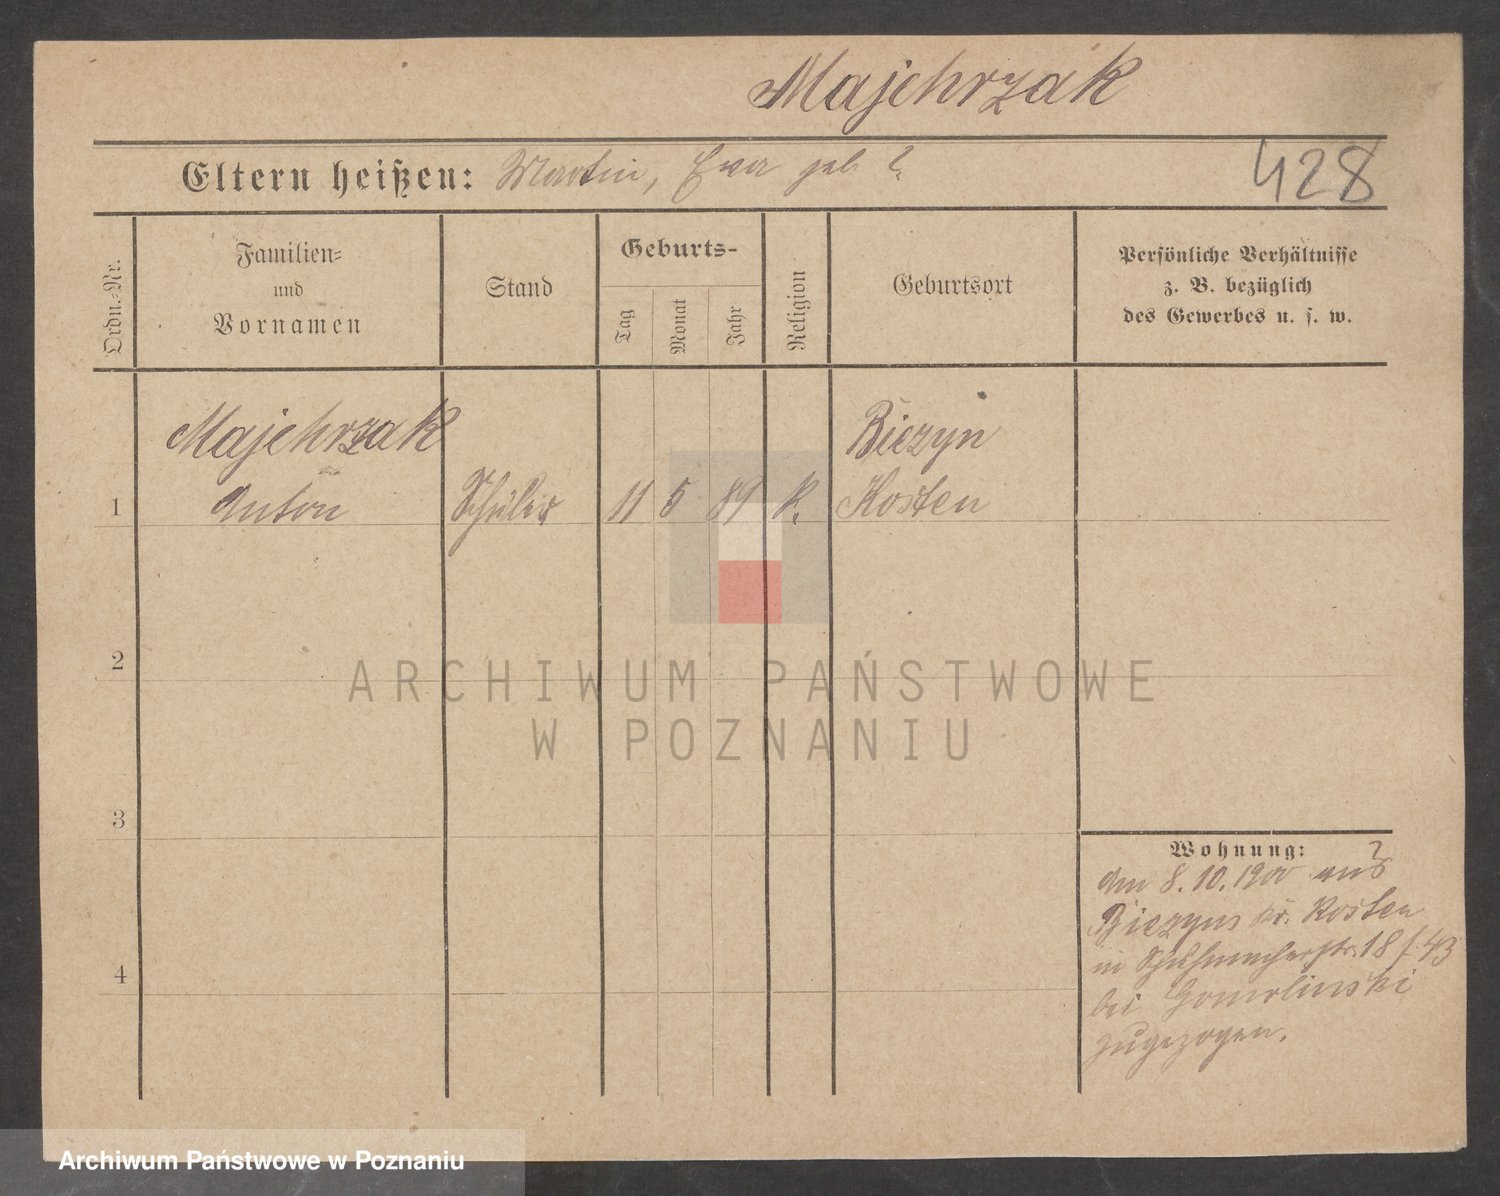 Majchrzak
Eltern heißen: Martin, Ewa geb. ?
428
Ordn.-Nr.
Familien-
und
Vornamen
Stand
Geburts-
Tag
Monat
Jahr
Religion
Geburtsort
Persönliche Verhältnisse
z. B. bezüglich
des Gewerbes u. s. w.
Majchrzak
Biczyn
1 Anton Schüler 11 5 89 k. Kosten
2
ARCHIWUM PAŃSTWOWE
W POZNANIU
3
Wohnung:
dm 8.10.1900 aus
Biczyn Kr. Kosten
in Schuhmacherstr. 18 /: 43
bei Gomolinski
zugezogen.
4
Archiwum Państwowe w Poznaniu